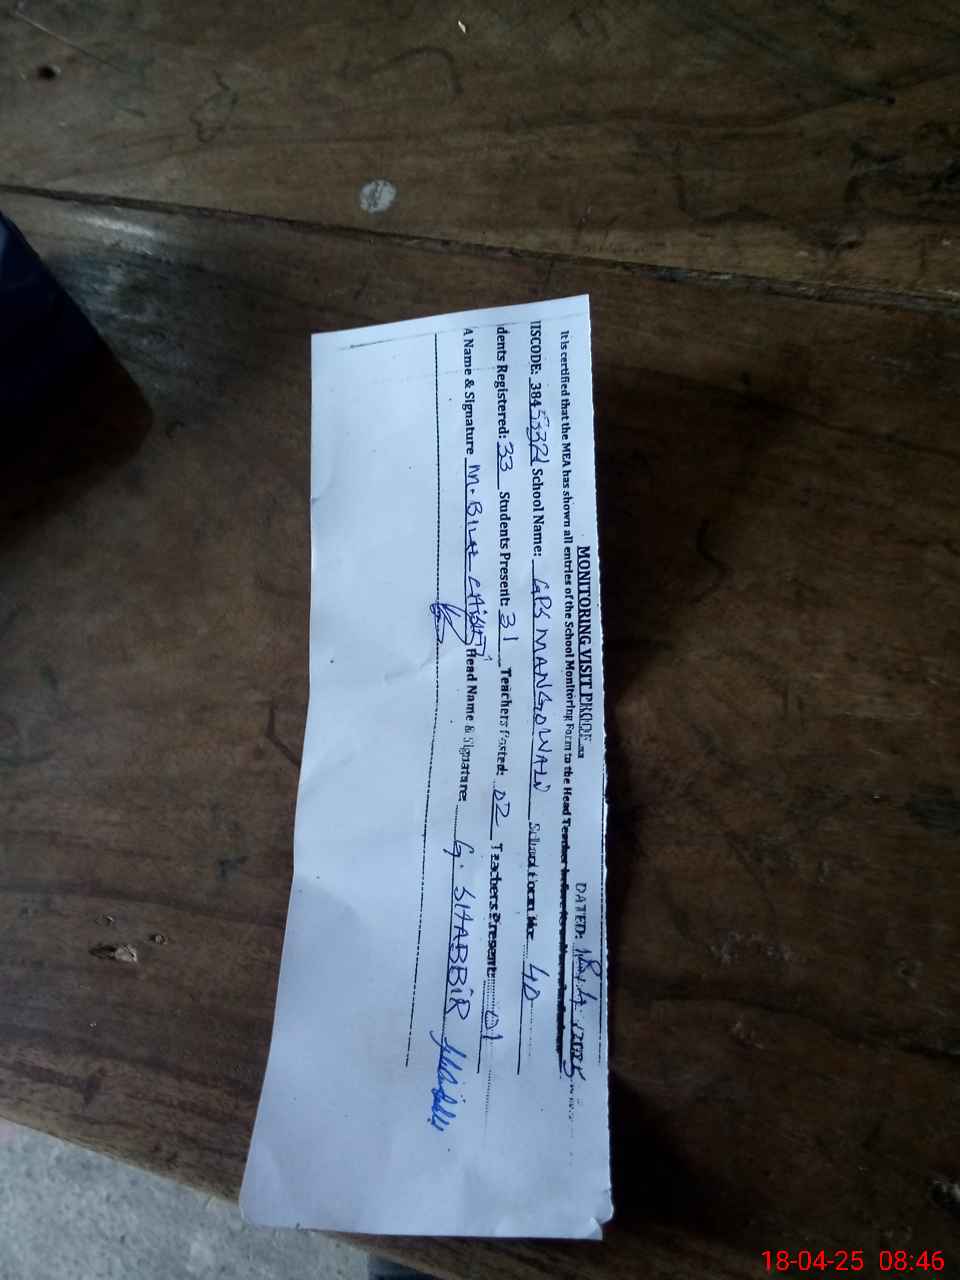 MONITORING VISIT PROOF
DATED: 18.4.2025
It is certified that the MEA has shown all entries of the School Monitoring Form to the Head Teacher
IISCODE: 384 School Name: GPS MANGOWAL School 40
dents Registered: 33 Students Present: 31 Teachers Posted: 02 Teachers Present: 01
A Name & Signature M. BILAL Head Name & Signature: G. SHABBIR
18-04-25 08:46